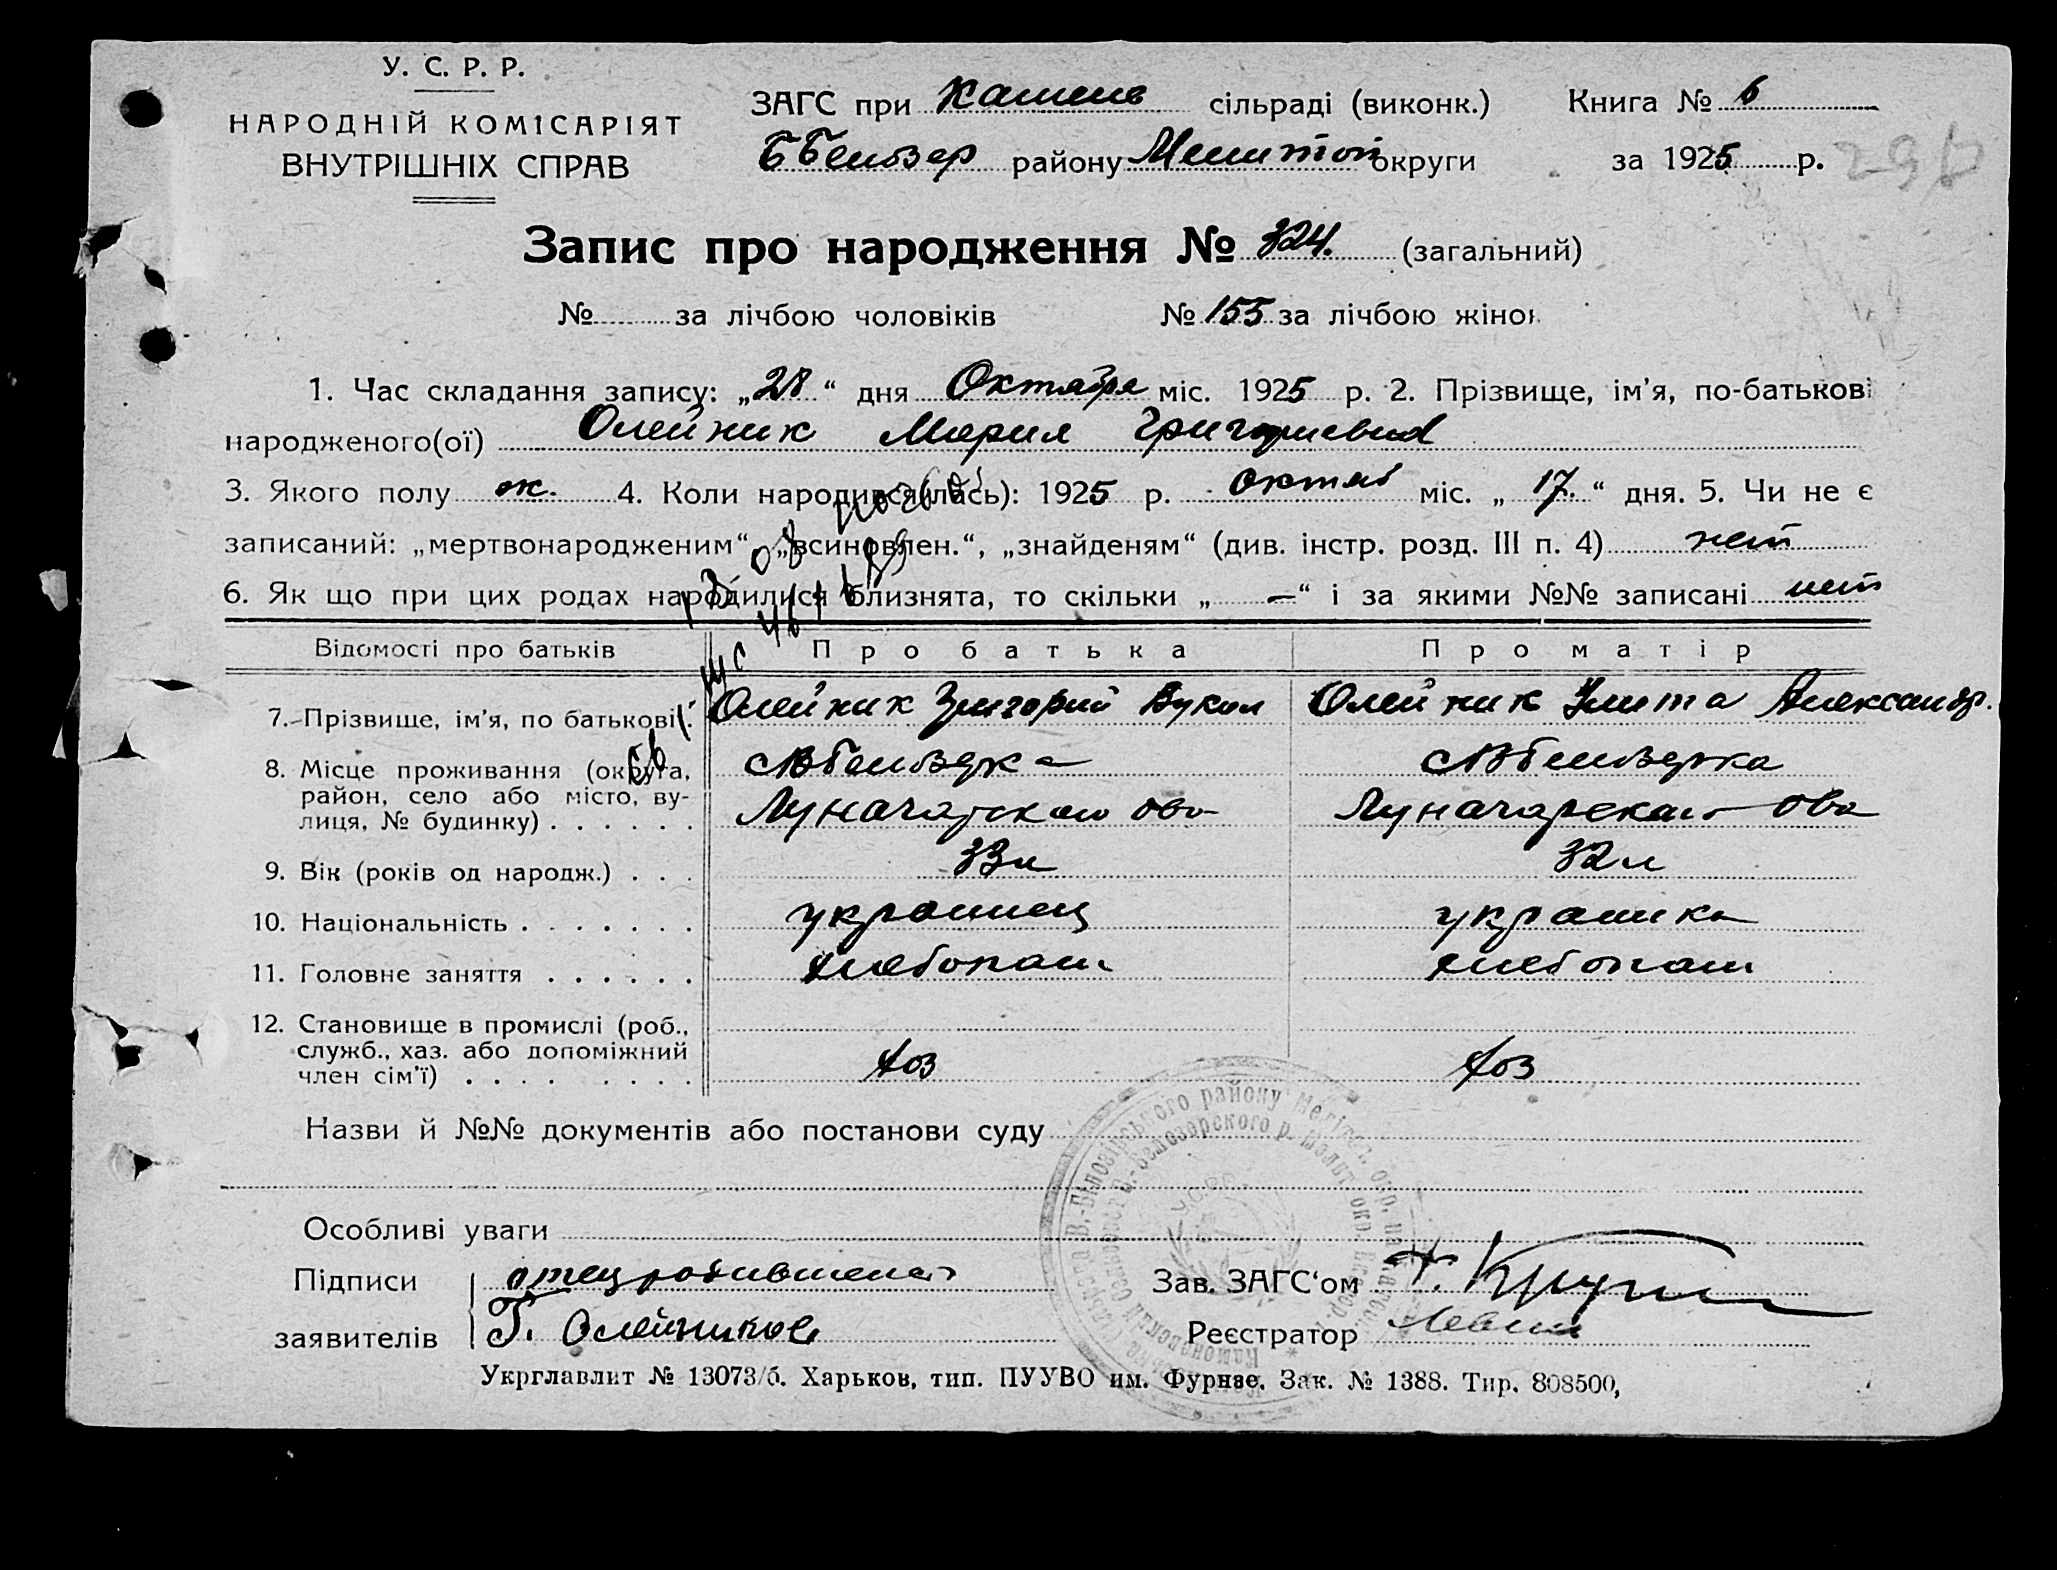 У. С. Р. Р.
НАРОДНІЙ КОМІСАРІЯТ
ВНУТРІШНІХ СПРАВ
ЗАГС при Камене сільраді (виконк.)
Книга № 6
Ббелозер району Мелитоп округи
за 1925 р.
296
Запис про народження № 324. (загальний)
№ за лічбою чоловіків № 155 за лічбою жінок
1. Час складання запису: „28“ дня Октября міс. 1925 р. 2. Прізвище, ім'я, по-батькові
народженого(ої) Олейник Мария Григориевна
3. Якого полу ж. 4. Коли народився(лась): 1925 р. октяб міс. „17.“ дня. 5. Чи не є
записаний: „мертвонародженим“, „всиновлен.“, „знайденям“ (див. інстр. розд. III п. 4) нет
6. Як що при цих родах народилися близнята, то скільки „—“ і за якими №№ записані нет
Відомості про батьків Про батька Про матір
7. Прізвище, ім'я, по батькові Олейник Григорий Вукол Олейник Улита Александр.
8. Місце проживання (округа, район, село або місто, вулиця, № будинку) сВбелозерка сВбелозерка
Луначарскаго ова Луначарскаго ова
9. Вік (років од народж.) 33л 32л
10. Національність украинец украинка
11. Головне заняття хлебопаш хлебопаш
12. Становище в промислі (роб., служб., хаз. або допоміжний член сім'ї) хоз хоз
Назви й №№ документів або постанови суду
Особливі уваги
Підписи отец
заявителів Г. Олейников
Зав. ЗАГС'ом
Реєстратор
Укрглавлит № 13073/б. Харьков, тип. ПУУВО им. Фурнзе. Зак. № 1388. Тир. 808500,